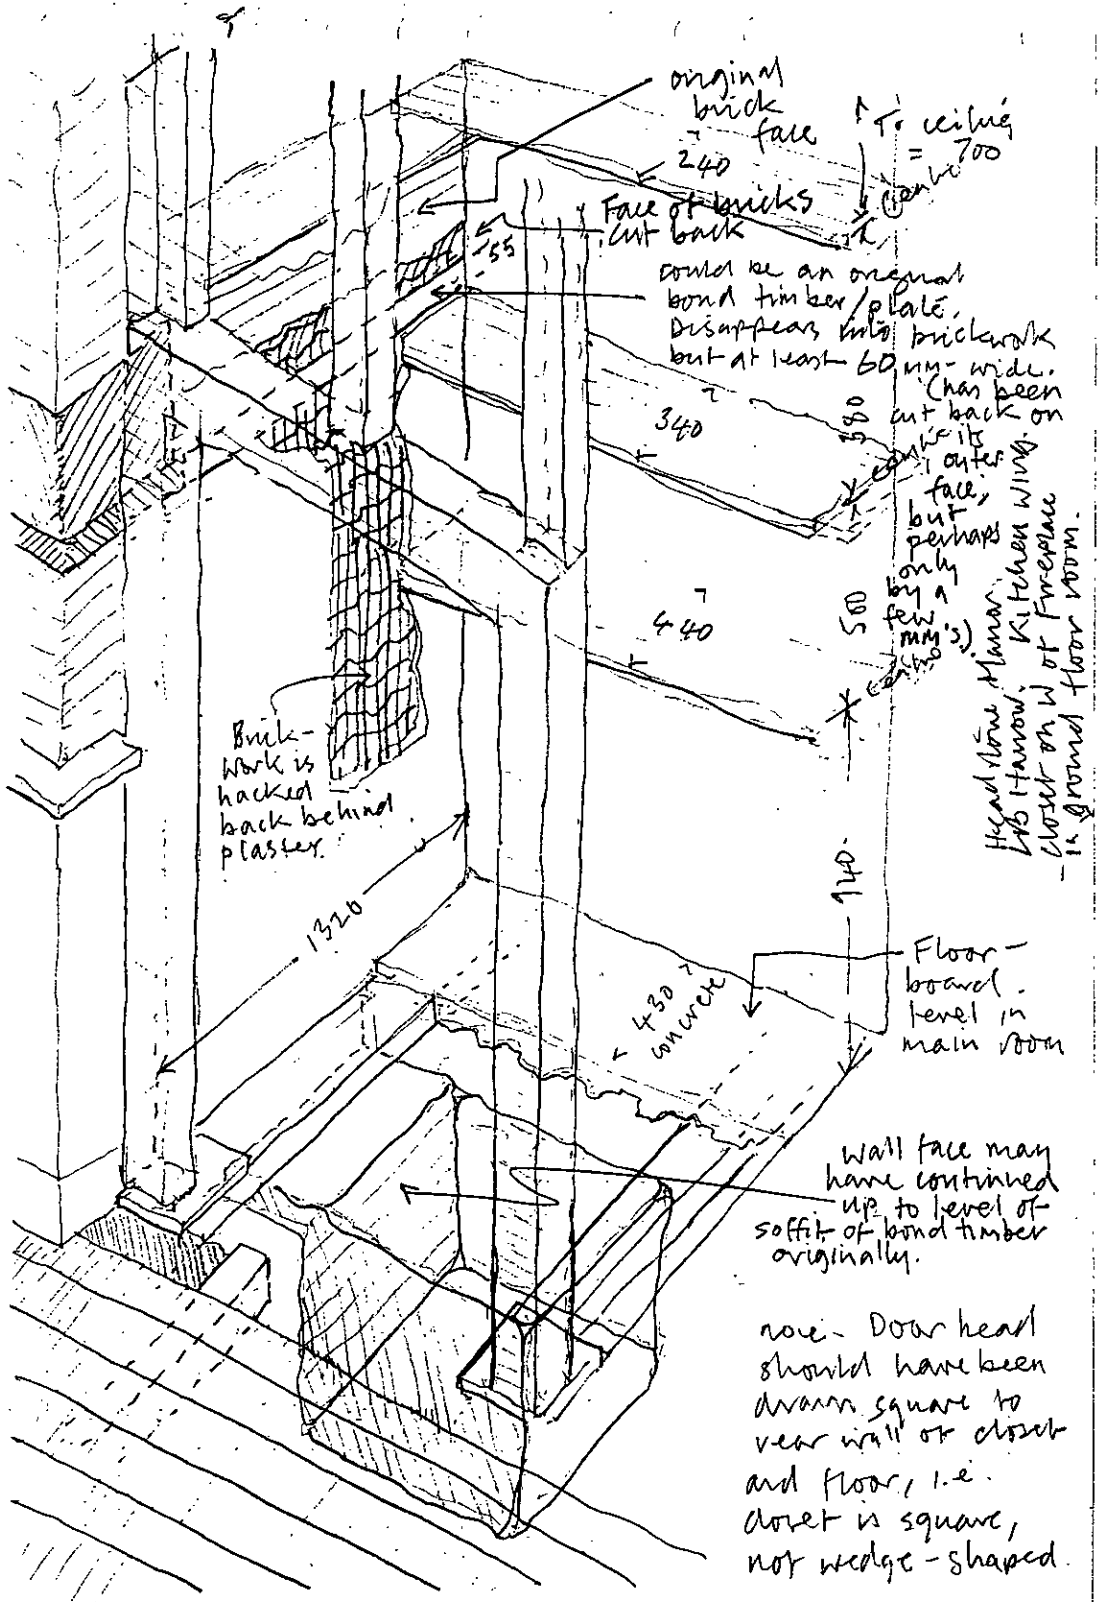 original
brick
face
To ceiling
= 700
centre
240
Face of bricks
cut back
55
could be an original
bond timber/plate.
Disappears into brickwork
but at least 60 mm wide.
(has been
cut back on
its
outer
face,
but
perhaps
only
by a
few
mm's)
340
380
centre
440
500
centre
Headstone Manor.
LB Harrow. Kitchen wing.
- closet on W of Fireplace
in ground floor room.
Brick-
work is
hacked
back behind
plaster.
1320
940
430
concrete
Floor-
board
level in
main room
wall face may
have continued
up to level of
soffit of bond timber
originally.
note - Door head
should have been
drawn square to
rear wall of closet
and floor, i.e.
closet is square,
not wedge-shaped.